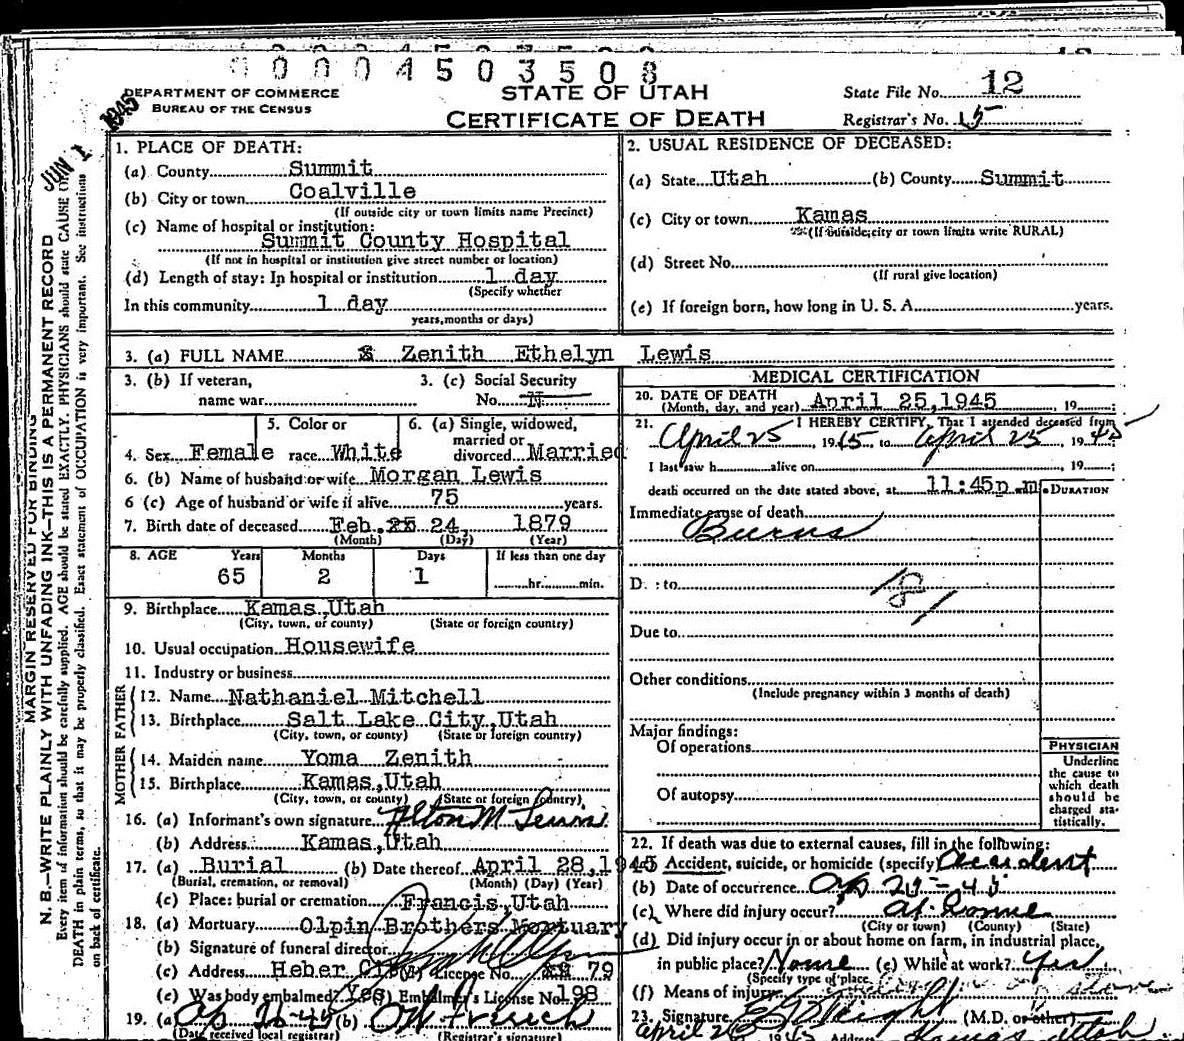 0 0 0 4 5 0 3 5 0 8
12
DEPARTMENT OF COMMERCE
BUREAU OF THE CENSUS
STATE OF UTAH
CERTIFICATE OF DEATH
State File No. 12
Registrar's No. 15
JUN 1 1945
MARGIN RESERVED FOR BINDING
N. B.—WRITE PLAINLY WITH UNFADING INK—THIS IS A PERMANENT RECORD
Every item of information should be carefully supplied. AGE should be stated EXACTLY. PHYSICIANS should state CAUSE
DEATH in plain terms, so that it may be properly classified. Exact statement of OCCUPATION is very important. See instructions
on back of certificate.
1. PLACE OF DEATH:
(a) County Summit
(b) City or town Coalville
(If outside city or town limits name Precinct)
(c) Name of hospital or institution:
Summit County Hospital
(If not in hospital or institution give street number or location)
(d) Length of stay: In hospital or institution 1 day
(Specify whether
In this community 1 day
years, months or days)
2. USUAL RESIDENCE OF DECEASED:
(a) State Utah (b) County Summit
(c) City or town Kamas
(If outside city or town limits write RURAL)
(d) Street No.
(If rural give location)
(e) If foreign born, how long in U. S. A. years.
3. (a) FULL NAME Zenith Ethelyn Lewis
3. (b) If veteran, 3. (c) Social Security
name war No. N
4. Sex Female 5. Color or race White 6. (a) Single, widowed, married or divorced Married
6. (b) Name of husband or wife Morgan Lewis
6 (c) Age of husband or wife if alive 75 years.
7. Birth date of deceased Feb. 25 24, 1879
(Month) (Day) (Year)
8. AGE Years Months Days If less than one day
65 2 1 hr. min.
9. Birthplace Kamas, Utah
(City, town, or county) (State or foreign country)
10. Usual occupation Housewife
11. Industry or business
FATHER
12. Name Nathaniel Mitchell
13. Birthplace Salt Lake City, Utah
(City, town, or county) (State or foreign country)
MOTHER
14. Maiden name Yoma Zenith
15. Birthplace Kamas, Utah
(City, town, or county) (State or foreign country)
16. (a) Informant's own signature Alton M Lewis
(b) Address Kamas, Utah
17. (a) Burial (b) Date thereof April 28, 1945
(Burial, cremation, or removal) (Month) (Day) (Year)
(c) Place: burial or cremation Francis, Utah
18. (a) Mortuary Olpin Brothers Mortuary
(b) Signature of funeral director
(c) Address Heber City License No. 79
(e) Was body embalmed? Yes Embalmer's License No. 198
19. (a) Ap 26-45 (b) O W French
(Date received local registrar) (Registrar's signature)
MEDICAL CERTIFICATION
20. DATE OF DEATH
(Month, day, and year) April 25, 1945, 19
21. I HEREBY CERTIFY, That I attended deceased from
April 25, 1945, to April 25, 1945
I last saw h alive on , 19 ;
death occurred on the date stated above, at 11:45p.m.
DURATION
Immediate cause of death
Burns
D to
Due to
Other conditions
(Include pregnancy within 3 months of death)
Major findings:
Of operations
Of autopsy
PHYSICIAN
Underline
the cause to
which death
should be
charged sta-
tistically.
22. If death was due to external causes, fill in the following:
Accident, suicide, or homicide (specify) Accident
(b) Date of occurrence Ap 25-45
(c) Where did injury occur? at home
(City or town) (County) (State)
(d) Did injury occur in or about home on farm, in industrial place,
in public place? Home (e) While at work? Yes
(Specify type of place)
(f) Means of injury stove
23. Signature (M.D. or other)
April 26 1945 Address Kamas Utah